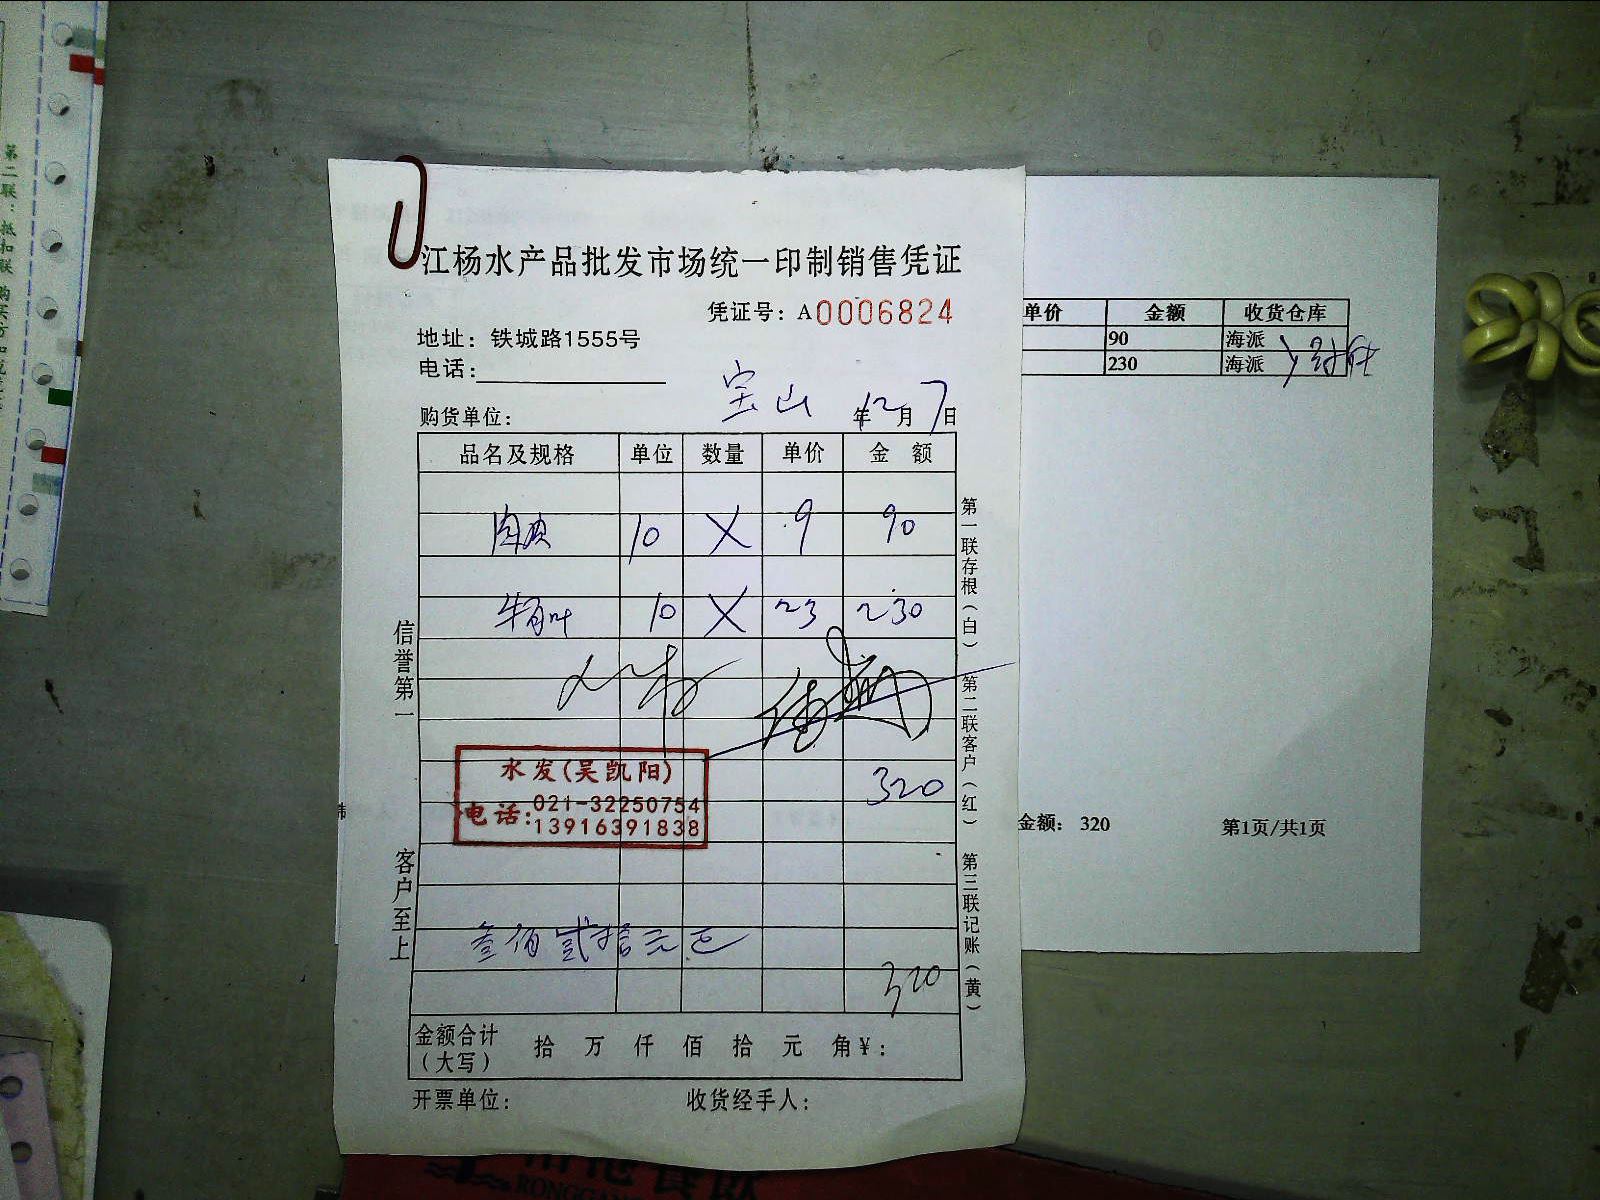 江杨水产品批发市场统一印制销售凭证
凭证号：A0006824
地址：铁城路1555号
电话：
宝山 年12月7日
购货单位：
品名及规格 单位 数量 单价 金 额
肉皮 10 X 9 90
牛百叶 10 X 23 230
320
水发(吴凯阳)
电话：021-32250754
13916391838
叁佰贰拾元正
320
金额合计
（大写） 拾 万 仟 佰 拾 元 角￥：
开票单位： 收货经手人：
信誉第一
客户至上
第一联存根（白）
第二联客户（红）
第三联记账（黄）
单价 金额 收货仓库
90 海派
230 海派
金额： 320 第1页/共1页
第二联：抵扣联 购买方